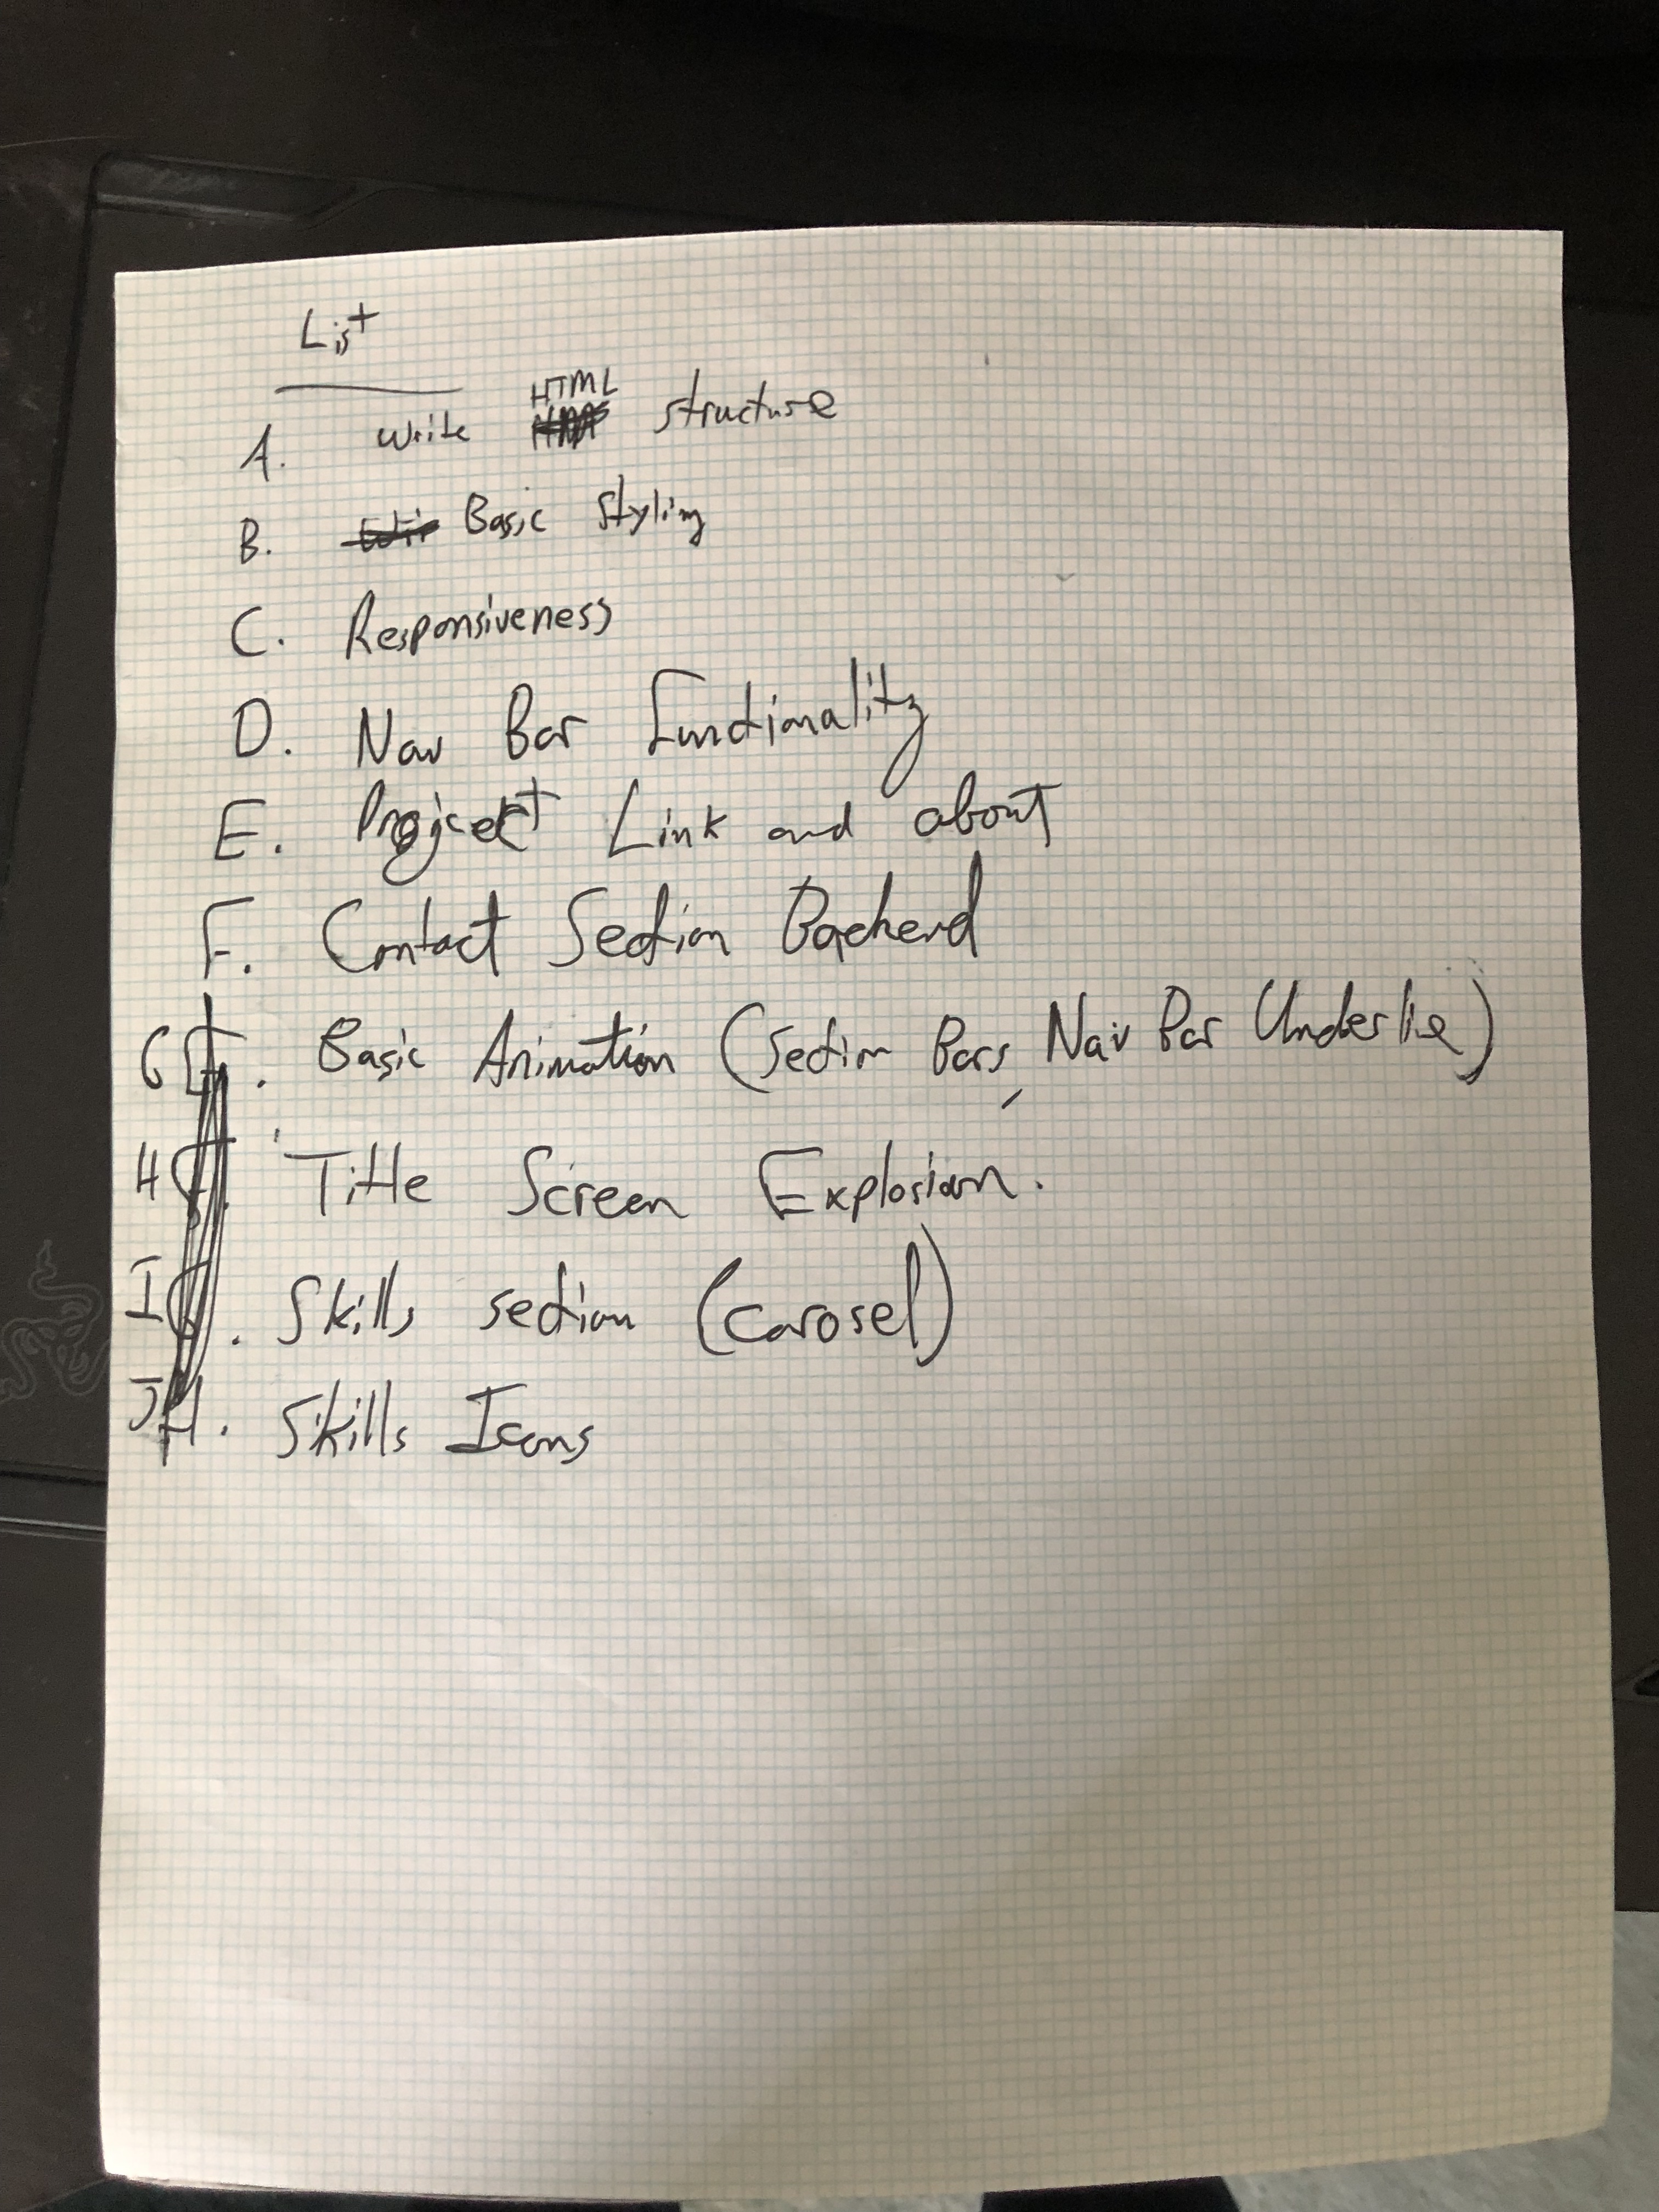 List
A. Write HTML structure
B. Basic Styling
C. Responsiveness
D. Nav Bar Functionality
E. Project Link and about
F. Contact Section Backend
G. Basic Animation (Section Bars, Nav Bar Underline)
H. Title Screen Explosion.
I. Skills section (carosel)
J. Skills Icons